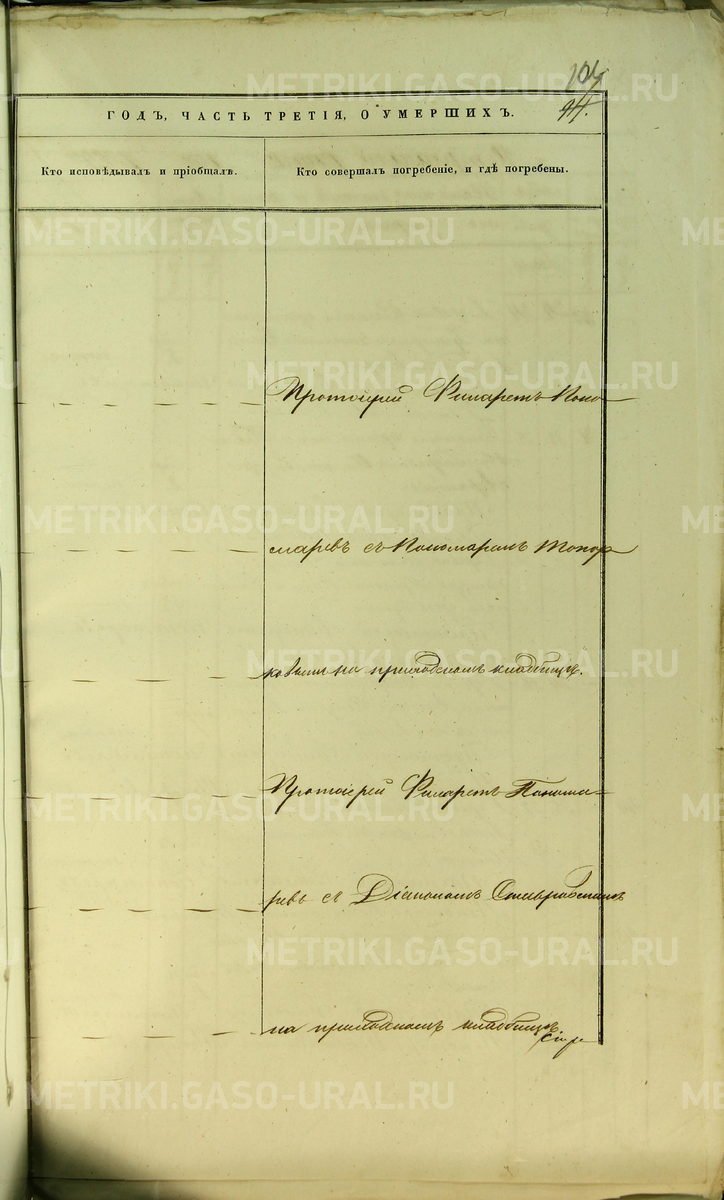 104
94.
ГОДЪ, ЧАСТЬ ТРЕТІЯ, О УМЕРШИХЪ.
Кто исповѣдывалъ и пріобщалъ.
Кто совершалъ погребеніе, и гдѣ погребены.
Протоіерей Филаретъ Поно-
маревъ съ Пономаремъ Топор
ковымъ на приходскомъ кладбищѣ.
Протоіерей Филаретъ Понома-
ревъ съ Діакономъ
на приходскомъ кладбищѣ.
METRIKI.GASO-URAL.RU